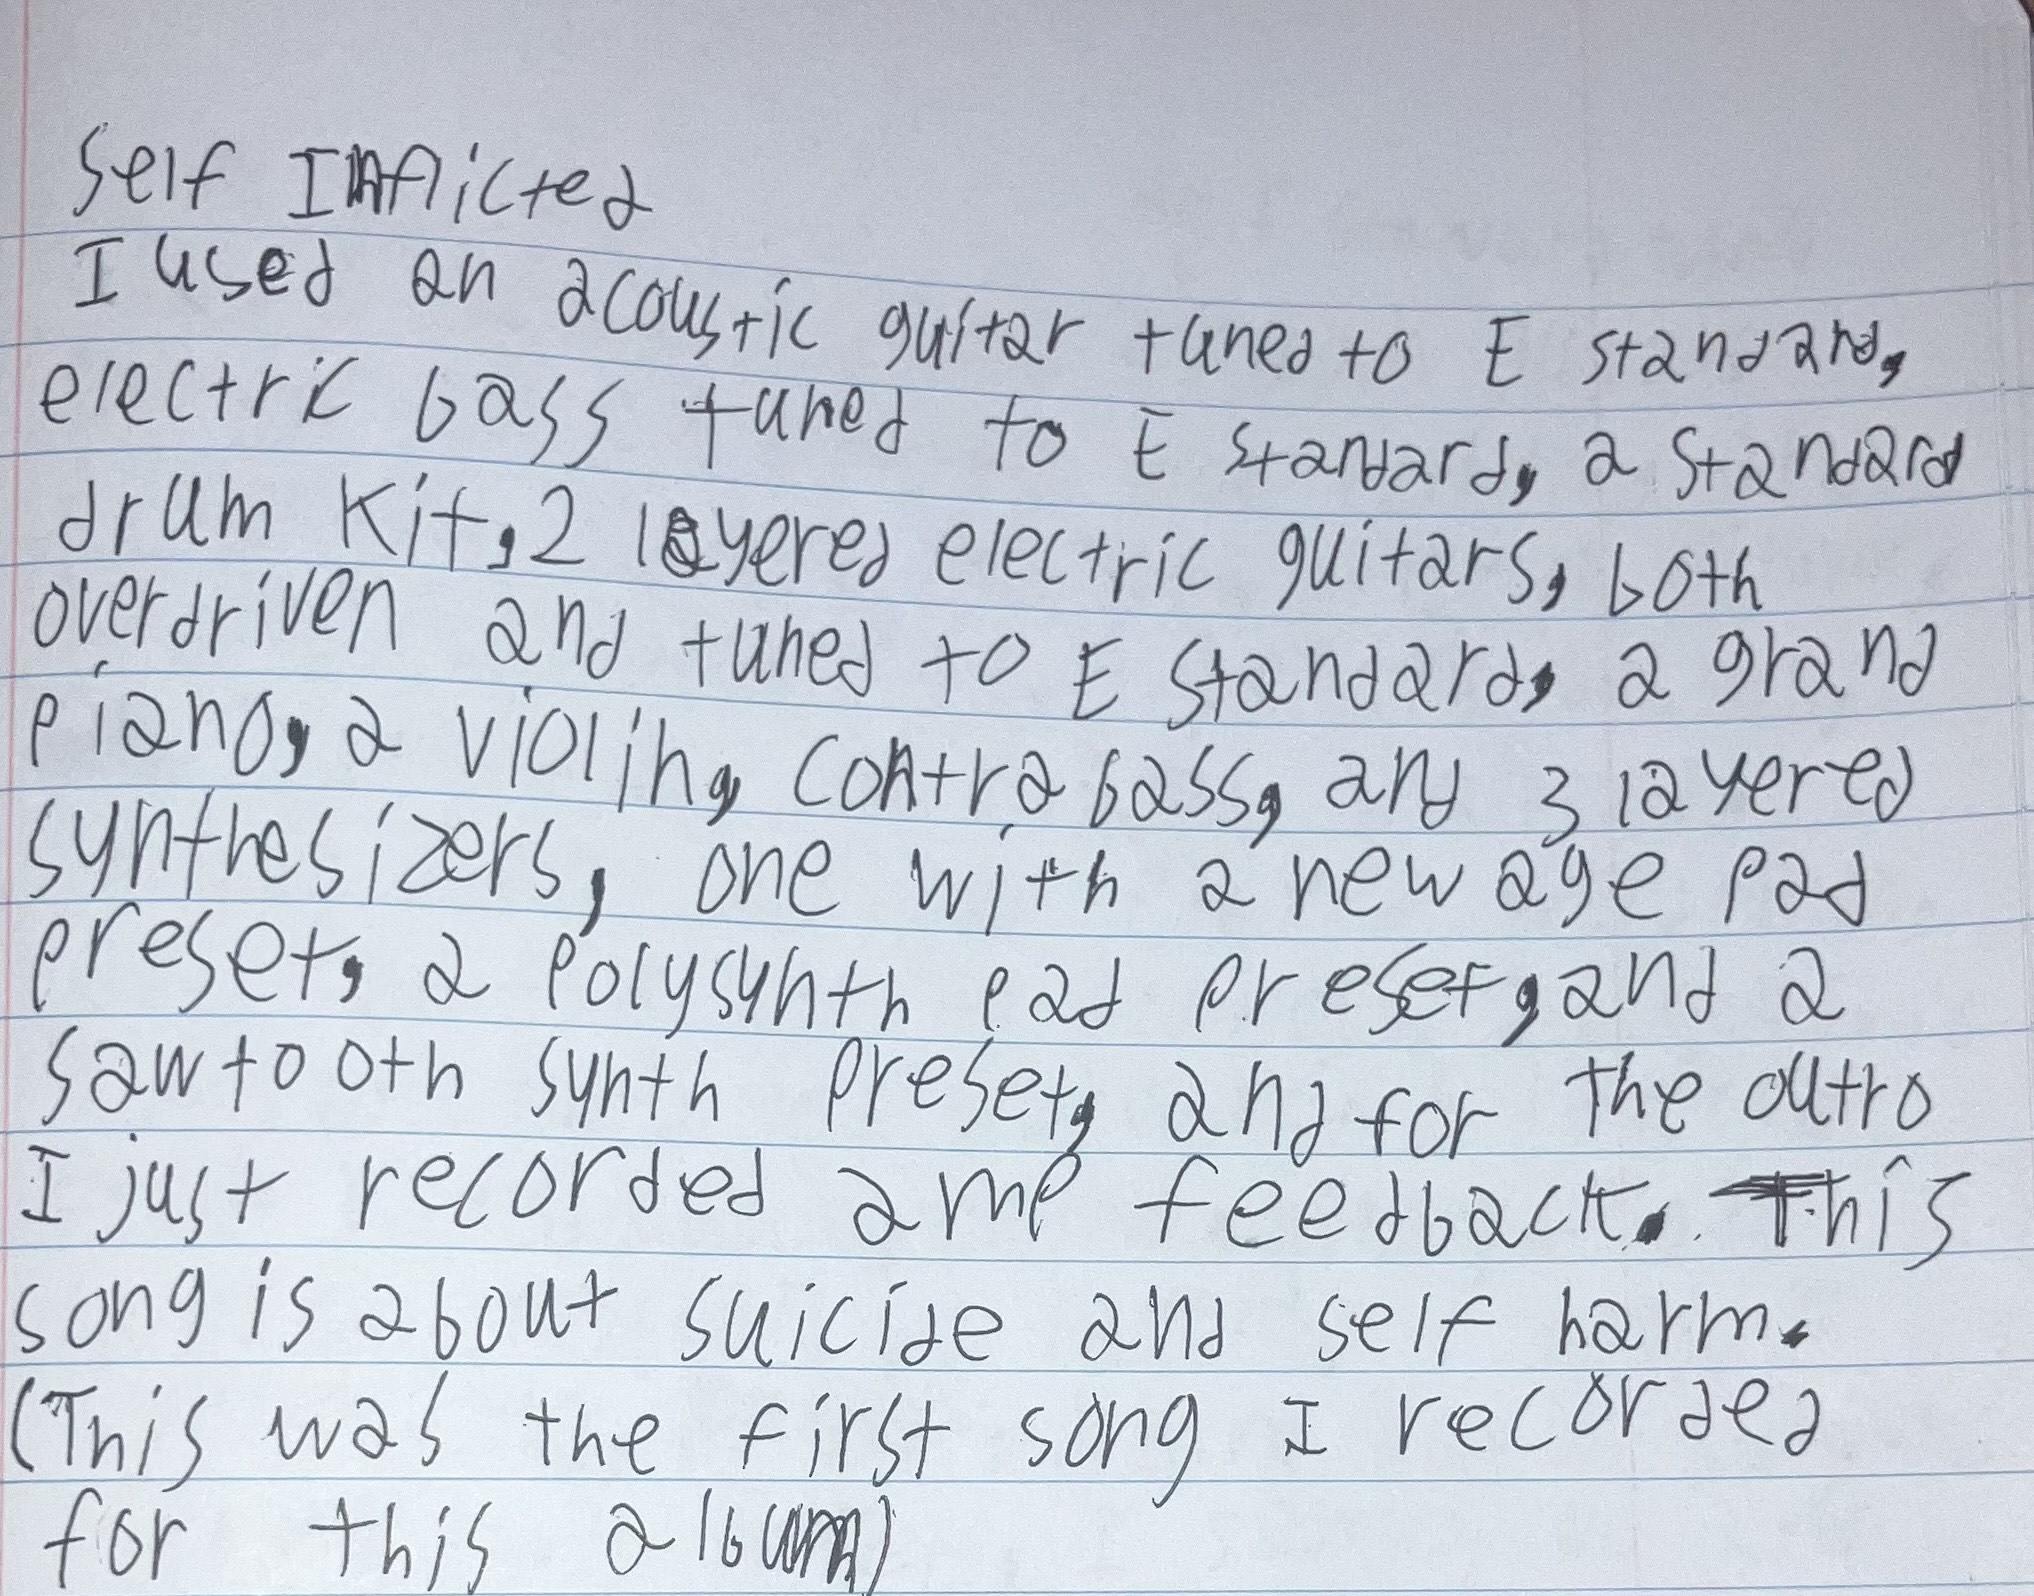 Self Inflicted
I used an acoustic guitar tuned to E standard,
electric bass tuned to E standard, a standard
drum kit, 2 layered electric guitars, both
overdriven and tuned to E standard, a grand
piano, a violin, contrabass, and 3 layered
synthesizers, one with a new age pad
preset, a polysynth pad preset, and a
sawtooth synth preset, and for the outro
I just recorded amp feedback. This
song is about suicide and self harm.
(This was the first song I recorded
for this album)